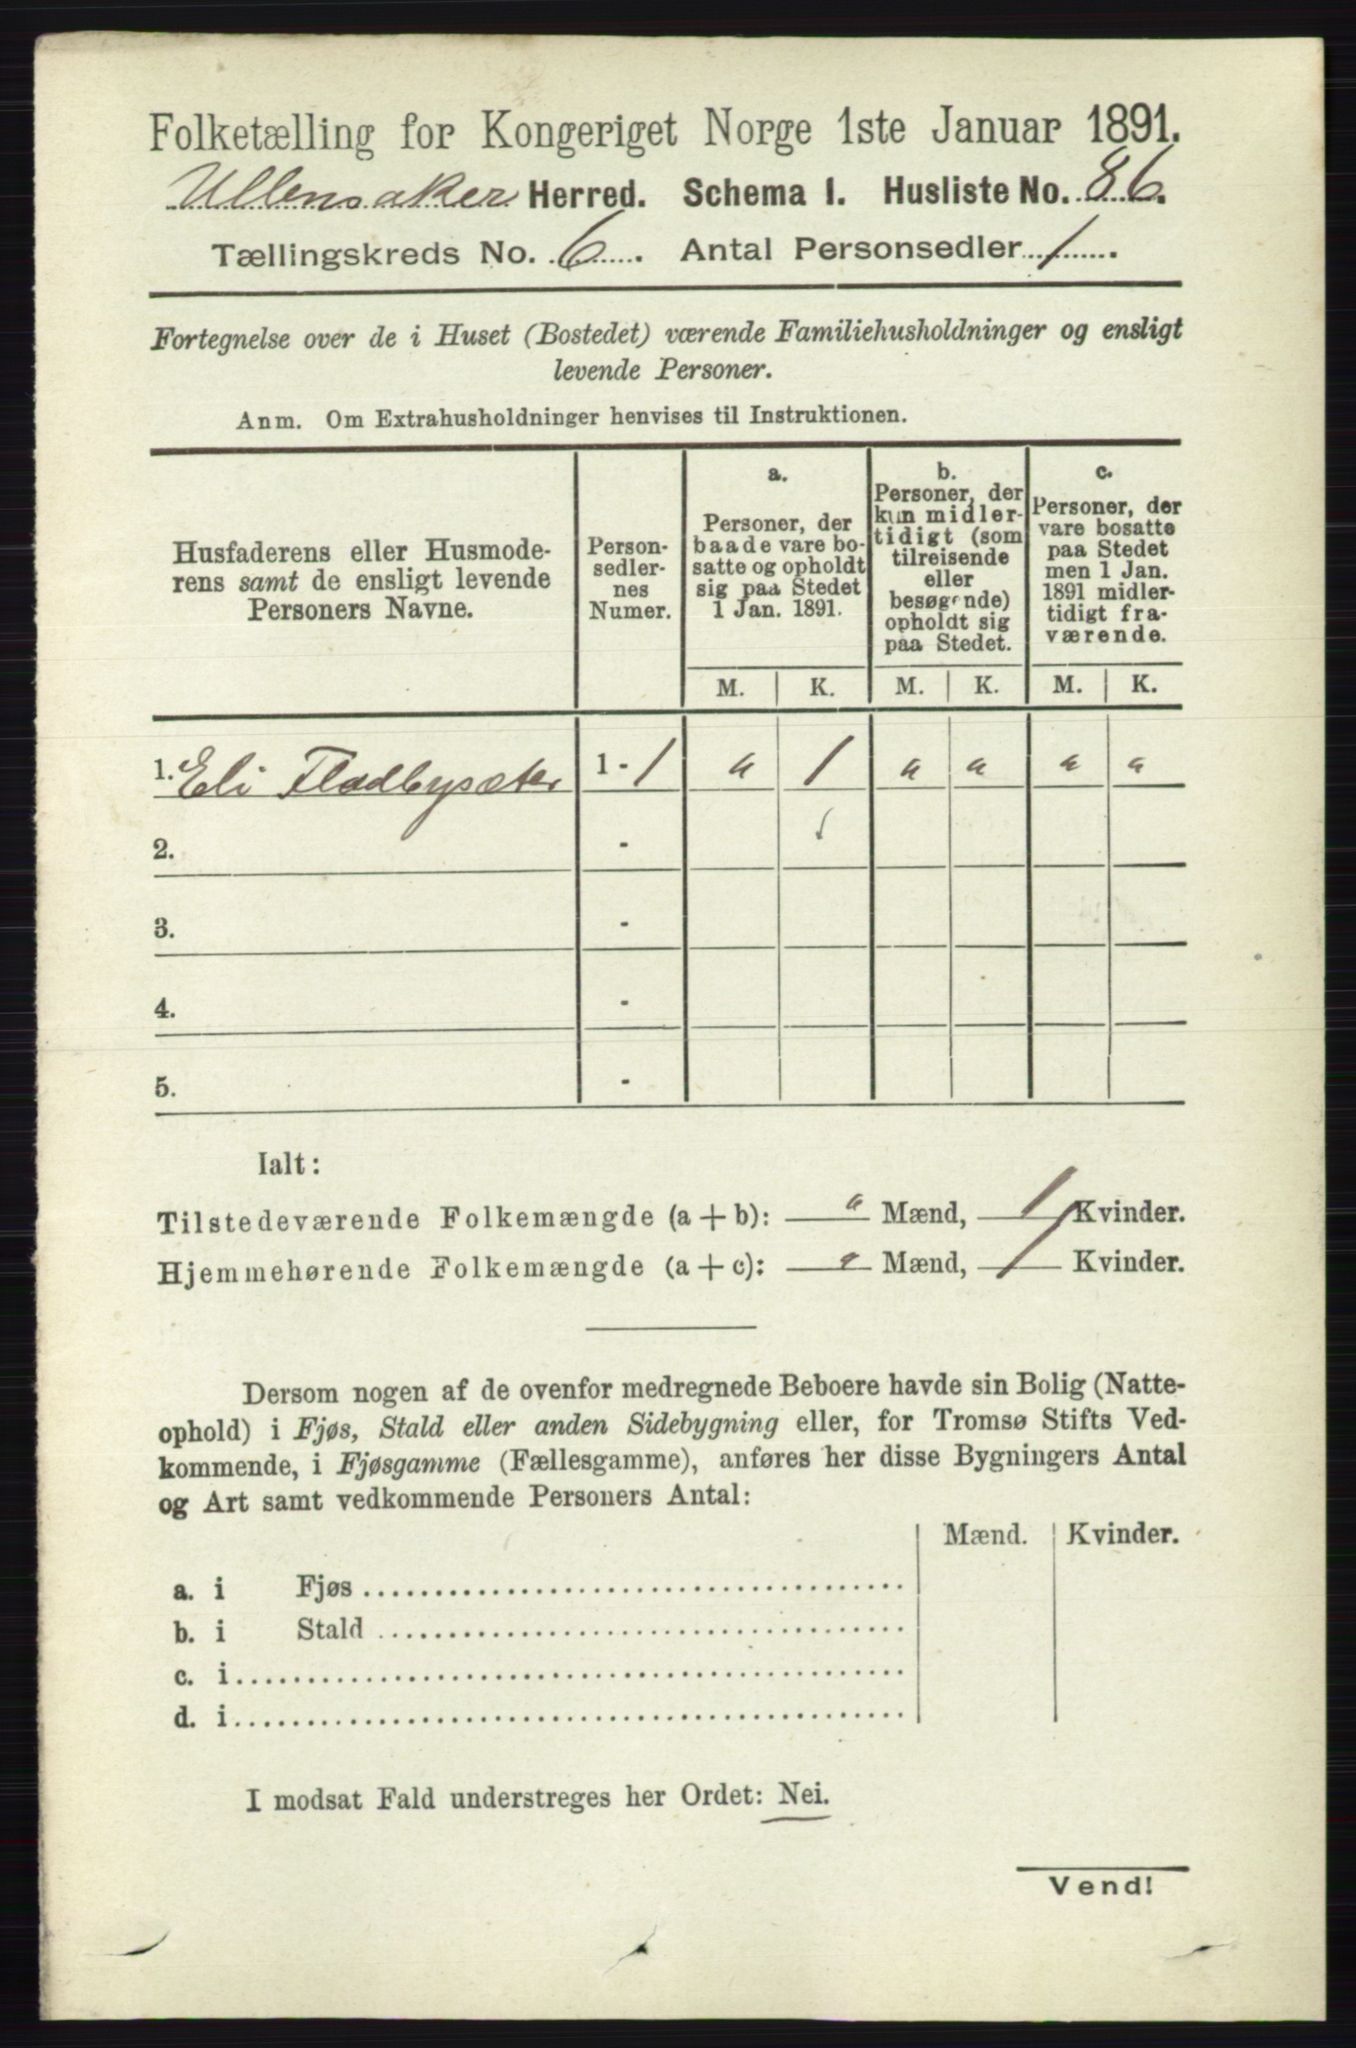 Folketælling for Kongeriget Norge 1ste Januar 1891.
Ullensaker Herred. Schema I. Husliste No. 86.
Tællingskreds No. 6. Antal Personsedler 1.
Fortegnelse over de i Huset (Bostedet) værende Familiehusholdninger og ensligt
levende Personer.
Anm. Om Extrahusholdninger henvises til Instruktionen.
Husfaderens eller Husmode-
rens samt de ensligt levende
Personers Navne.
Person-
sedler-
nes
Numer.
a.
Personer, der
baade vare bo-
satte og opholdt
sig paa Stedet
1 Jan. 1891.
b.
Personer, der
kun midler-
tidigt (som
tilreisende
eller
besøgende)
opholdt sig
paa Stedet.
c.
Personer, der
vare bosatte
paa Stedet
men 1 Jan.
1891 midler-
tidigt fra-
værende.
M. K. M. K. M. K.
1. Eli Fladbysæter 1 - 1 " 1 " " " "
2. -
3. -
4. -
5. -
Ialt:
Tilstedeværende Folkemængde (a + b): " Mænd, 1 Kvinder.
Hjemmehørende Folkemængde (a + c): " Mænd, 1 Kvinder.
Dersom nogen af de ovenfor medregnede Beboere havde sin Bolig (Natte-
ophold) i Fjøs, Stald eller anden Sidebygning eller, for Tromsø Stifts Ved-
kommende, i Fjøsgamme (Fællesgamme), anføres her disse Bygningers Antal
og Art samt vedkommende Personers Antal:
Mænd. Kvinder.
a. i Fjøs
b. i Stald
c. i
d. i
I modsat Fald understreges her Ordet: Nei.
Vend!